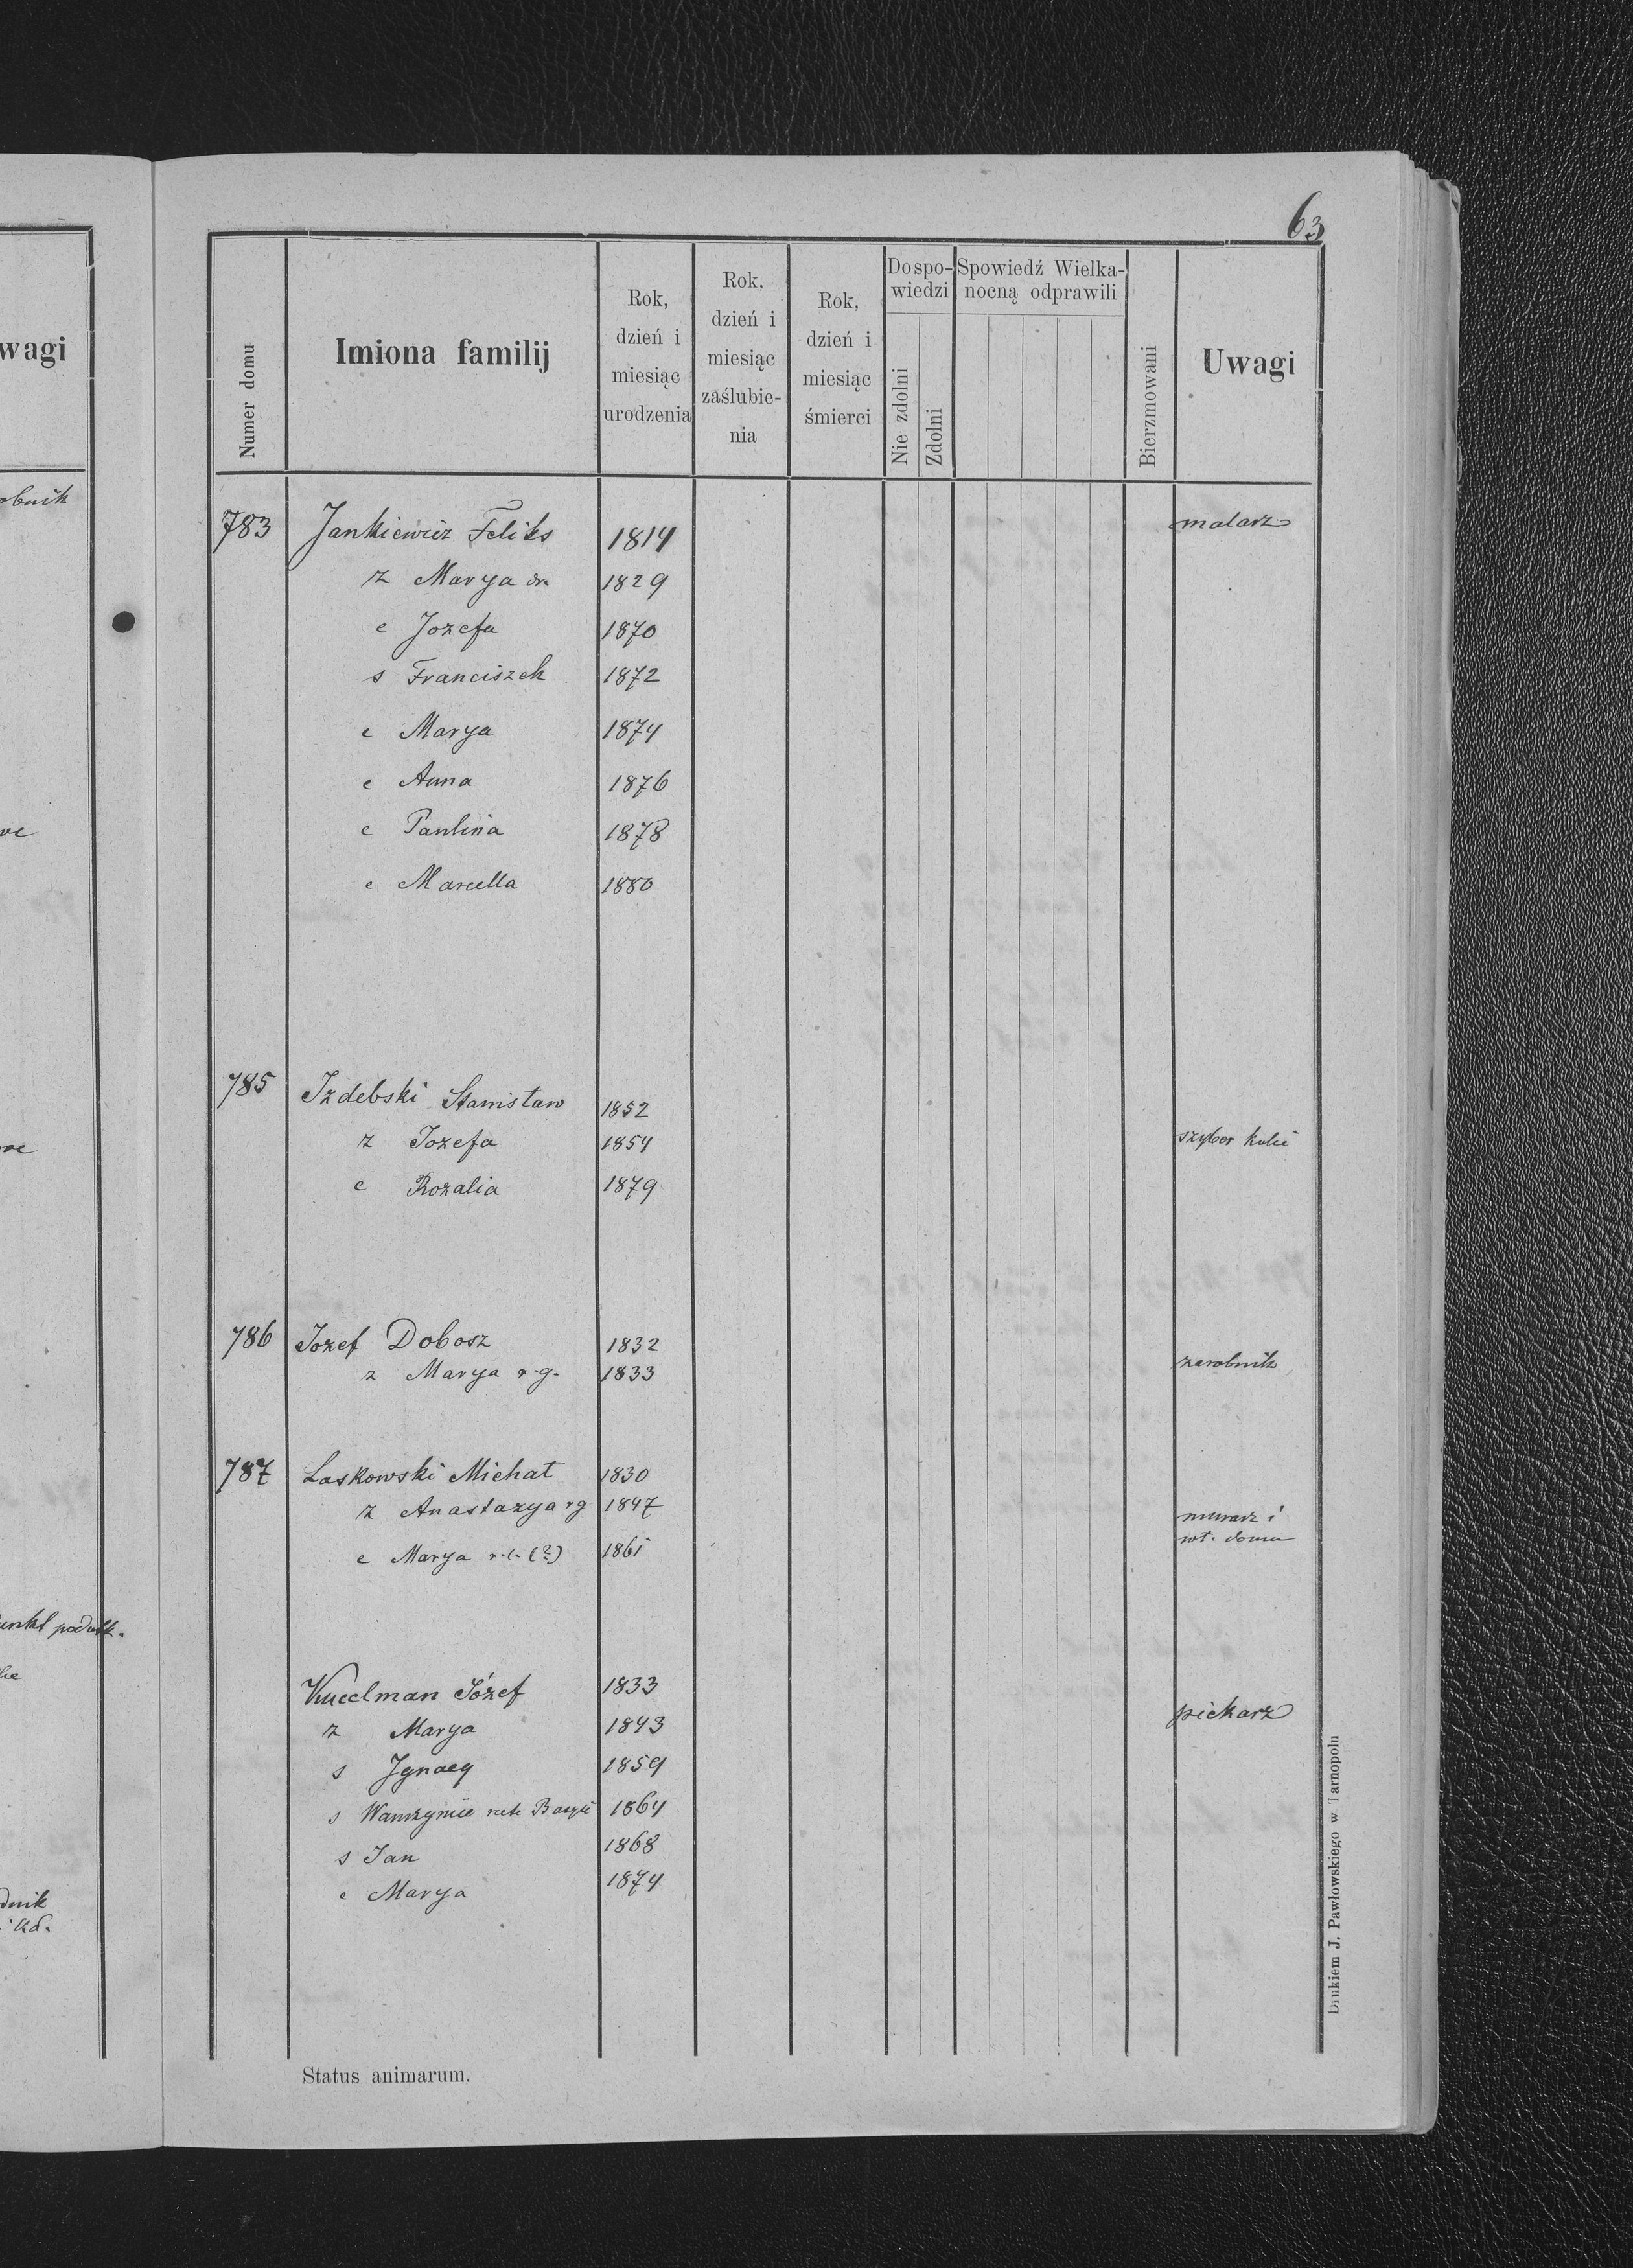 63
wagi
Numer domu
Imiona familij
Rok, dzień i miesiąc urodzenia
Rok, dzień i miesiąc zaślubienia
Rok, dzień i miesiąc śmierci
Do spowiedzi
Nie zdolni
Zdolni
Spowiedź Wielkanocną odprawili
Bierzmowani
Uwagi
obnik
783 Jankiewicz Feliks 1814 malarz
z Marya 1829
c Jozefa 1870
s Franciszek 1872
c Marya 1874
c Anna 1876
c Paulina 1878
c Marcella 1880
785 Izdebski Stanisław 1852
z Jozefa 1854 szyber kolei
c Rozalia 1879
786 Jozef Dobosz 1832
z Marya r.g. 1833 zarobnik
787 Laskowski Michał 1830
z Anastazya rg 1847 murarz i
wł. domu
c Marya r.l. (?) 1861
Józef 1833
z Marya 1843 piekarz
s Ignacy 1859
s 1864
s Jan 1868
c Marya 1874
Status animarum.
Drukiem J. Pawłowskiego w Tarnopolu